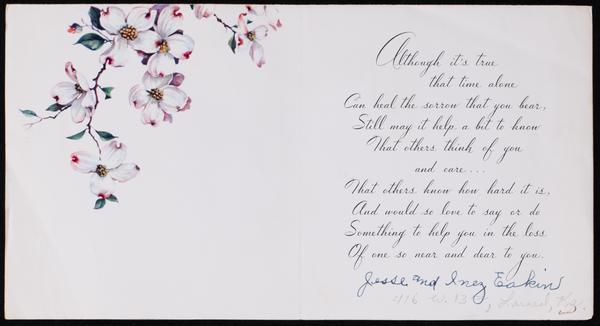 Although it's true
that time alone
Can heal the sorrow that you bear,
Still may it help a bit to know
That others think of you
and care...
That others know how hard it is,
And would so love to say or do
Something to help you in the loss
Of one so near and dear to you.
Jesse and Inez Eakin
416 W. 13 , Larned,